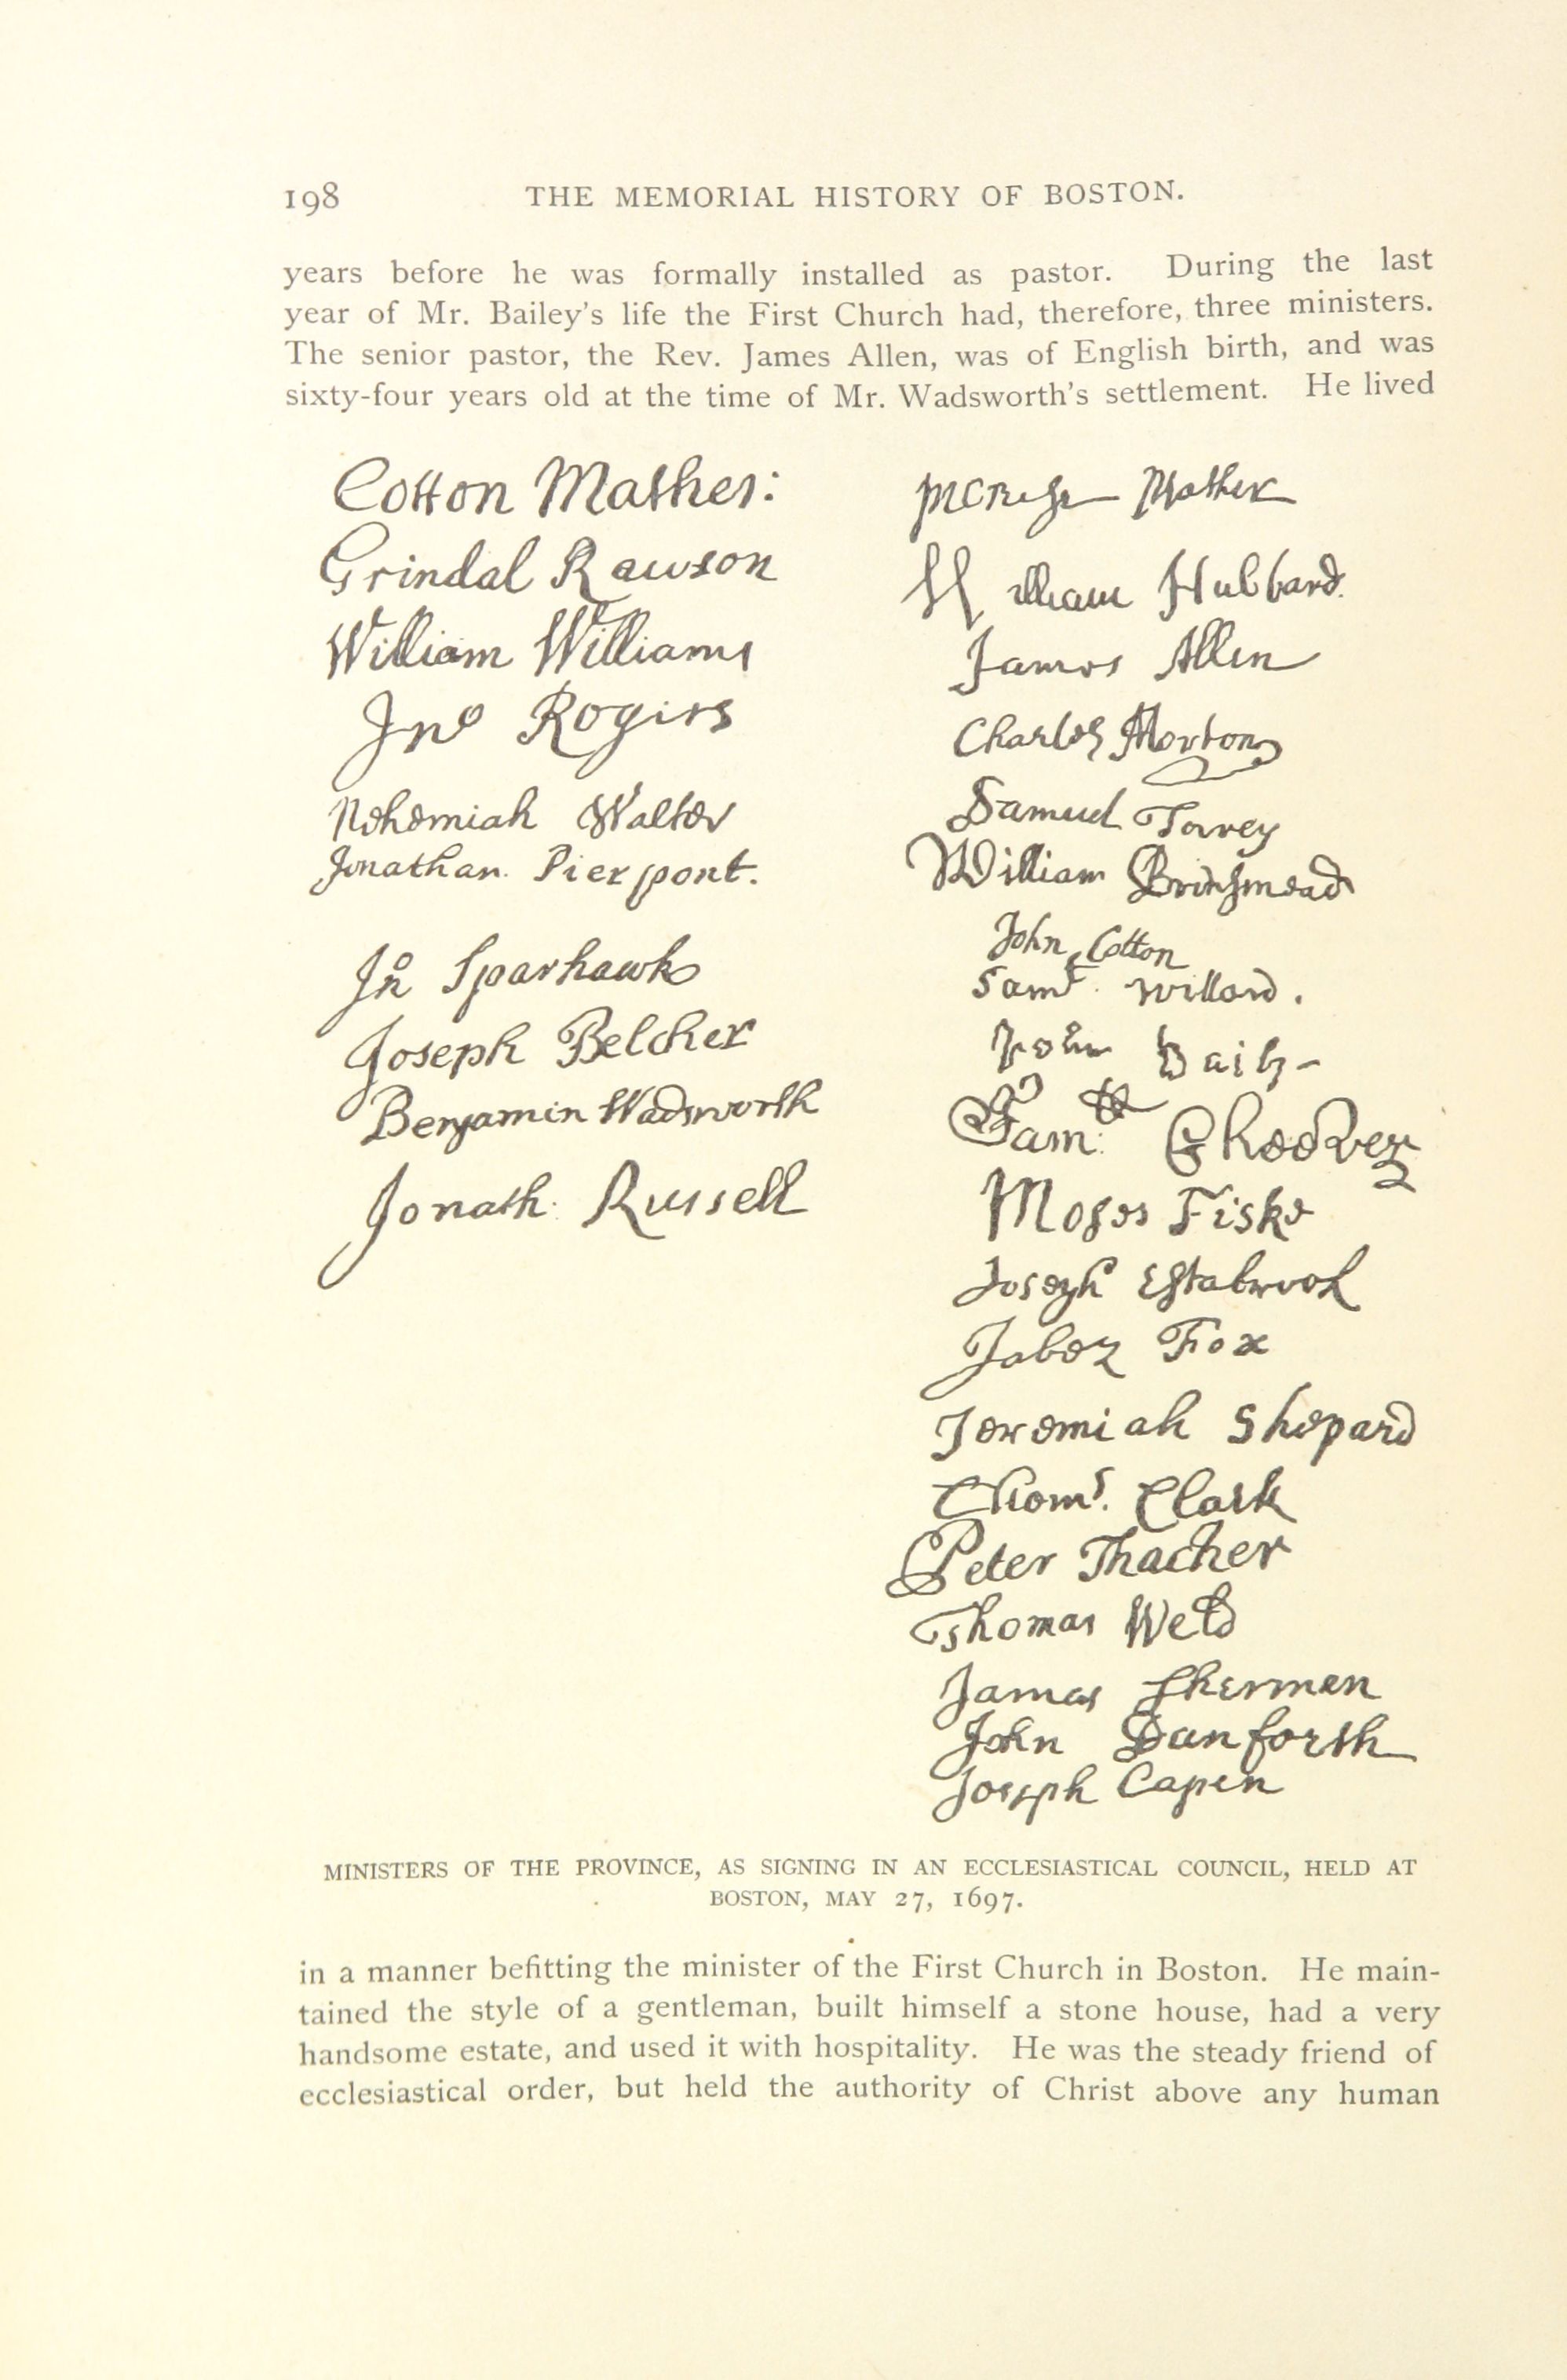 198 THE MEMORIAL HISTORY OF BOSTON.
years before he was formally installed as pastor. During the last
year of Mr. Bailey's life the First Church had, therefore, three ministers.
The senior pastor, the Rev. James Allen, was of English birth, and was
sixty-four years old at the time of Mr. Wadsworth's settlement. He lived
Cotton Mather:
Grindal Rawson
William Williams
Jno Rogers
Nehemiah Walter
Jonathan Pierpont.
Jn° Sparhawk
Joseph Belcher
Benjamin Wadsworth
Jonath: Russell
Mather
William Hubbard.
James Allen
Charles Morton
Samuel Torrey
William Brinsmead
John Cotton
Saml. Willard.
John Baily
Sam: Cheever
Moses Fiske
Joseph Estabrook
Jabez Fox
Jeremiah Shepard
Thoms. Clark
Peter Thacher
Thomas Weld
James Sherman
John Danforth
Joseph Capen
MINISTERS OF THE PROVINCE, AS SIGNING IN AN ECCLESIASTICAL COUNCIL, HELD AT
BOSTON, MAY 27, 1697.
in a manner befitting the minister of the First Church in Boston. He main-
tained the style of a gentleman, built himself a stone house, had a very
handsome estate, and used it with hospitality. He was the steady friend of
ecclesiastical order, but held the authority of Christ above any human